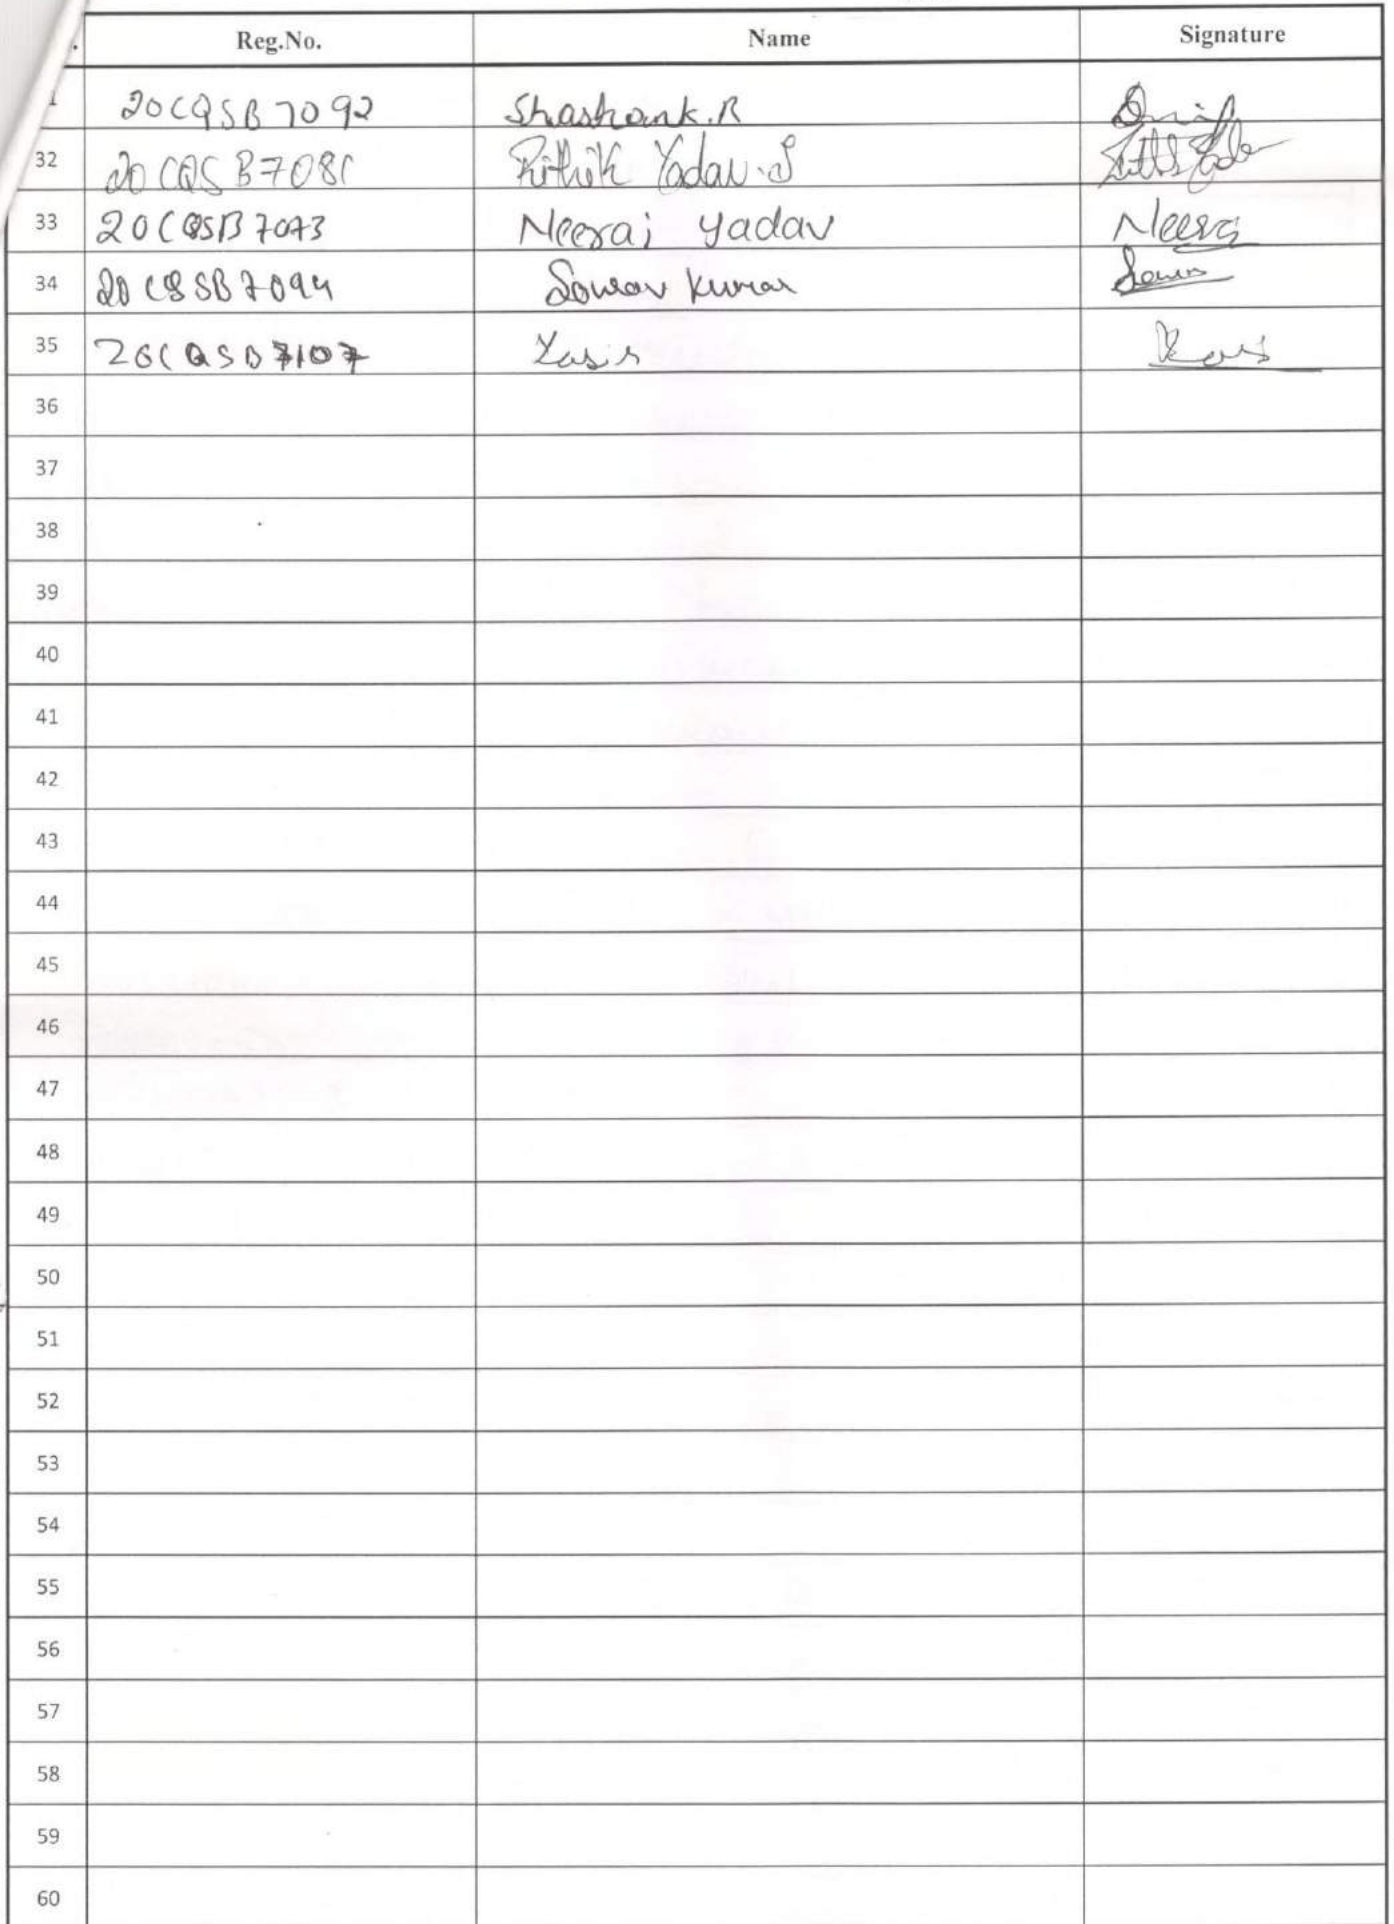 . Reg.No. Name Signature
1 20CQSB7092 Shashank.R
32 20CQSB7081 Rithik Yadav.S
33 20CQSB7073 Neeraj yadav Neeraj
34 20CQSB7094 Sourav kumar
35 20CQSB7107 Yasir
36
37
38
39
40
41
42
43
44
45
46
47
48
49
50
51
52
53
54
55
56
57
58
59
60